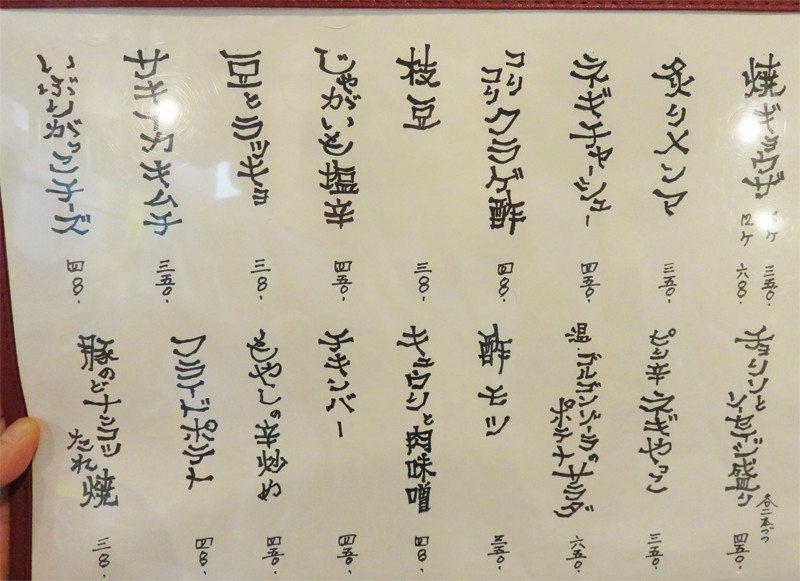 焼ギョウザ
6ケ 三五0.
12ケ 六8.
炙りメンマ 三五0.
ネギチャーシュー 四五0.
コリコリクラゲ酢 四8.
枝豆 三8.
じゃがいも塩辛 四五0.
豆とラッキョ 三8.
サキイカキムチ 三五0.
いぶりがっこチーズ 四8.
チョリソと
ソーセイジ盛り
各二本づつ
四五0.
ピリ辛ネギやっこ 三五0.
温.ゴルゴンゾーラの
ポテトサラダ 六五0.
酢モツ 三五0.
キュウリと肉味噌 四8.
チキンバー 四五0.
もやしの辛炒め 四五0.
フライドポテト 四8.
豚のどナンコツ
たれ焼 三8.